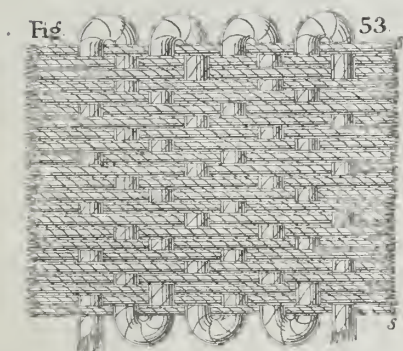 Fig. 53.
S
s